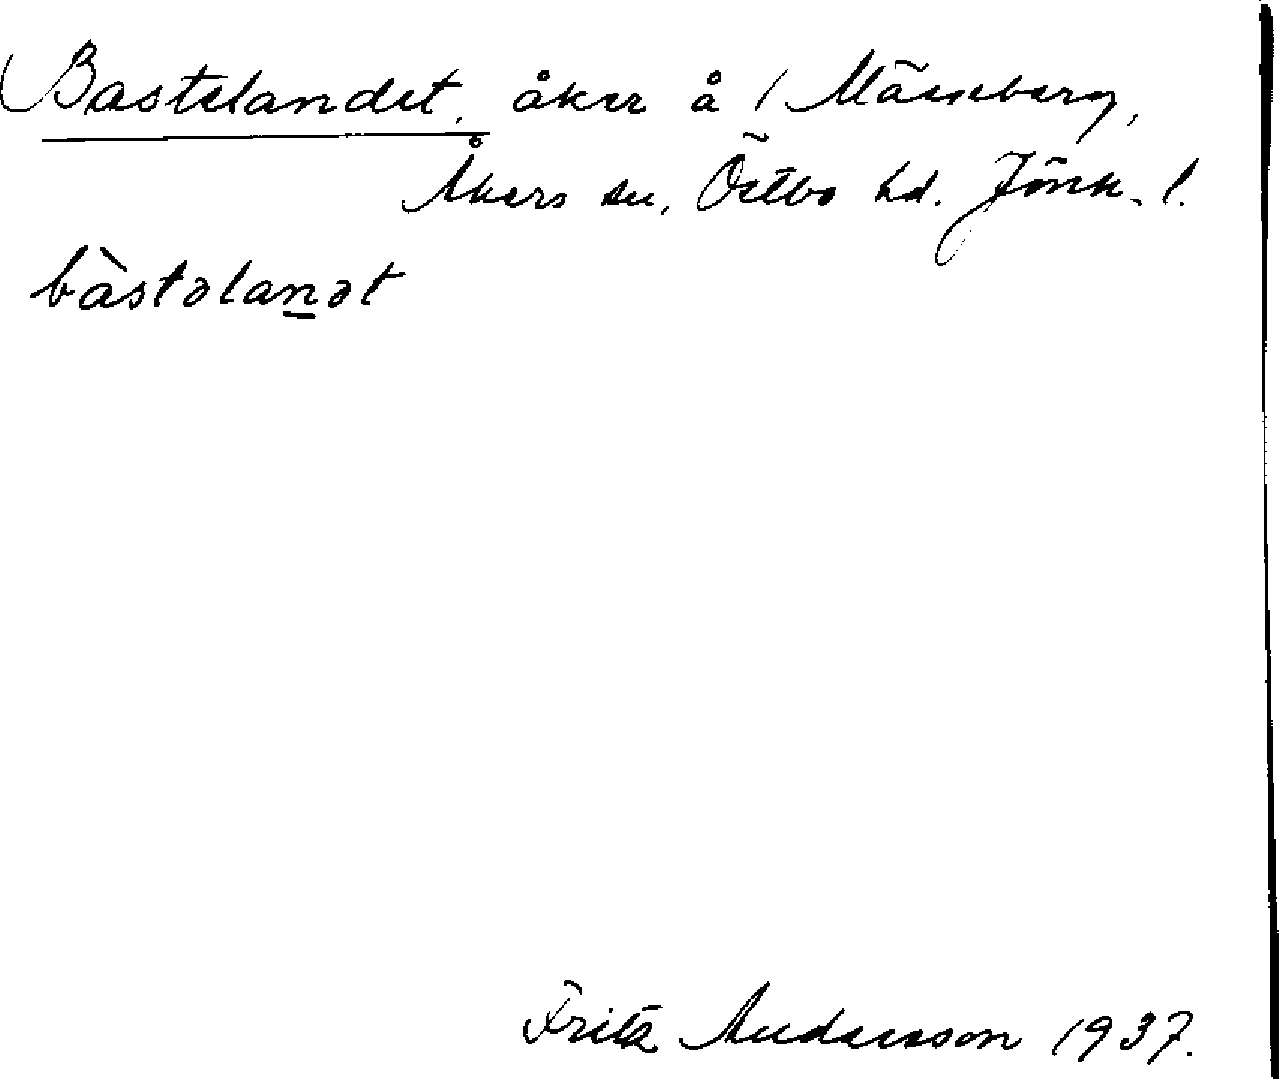 Bastelandet, åker å 1 Mäseberg,
Åkers sn, Östbo hd. Jönk. l.
bàstəlanət
Fritz Andersson 1937.